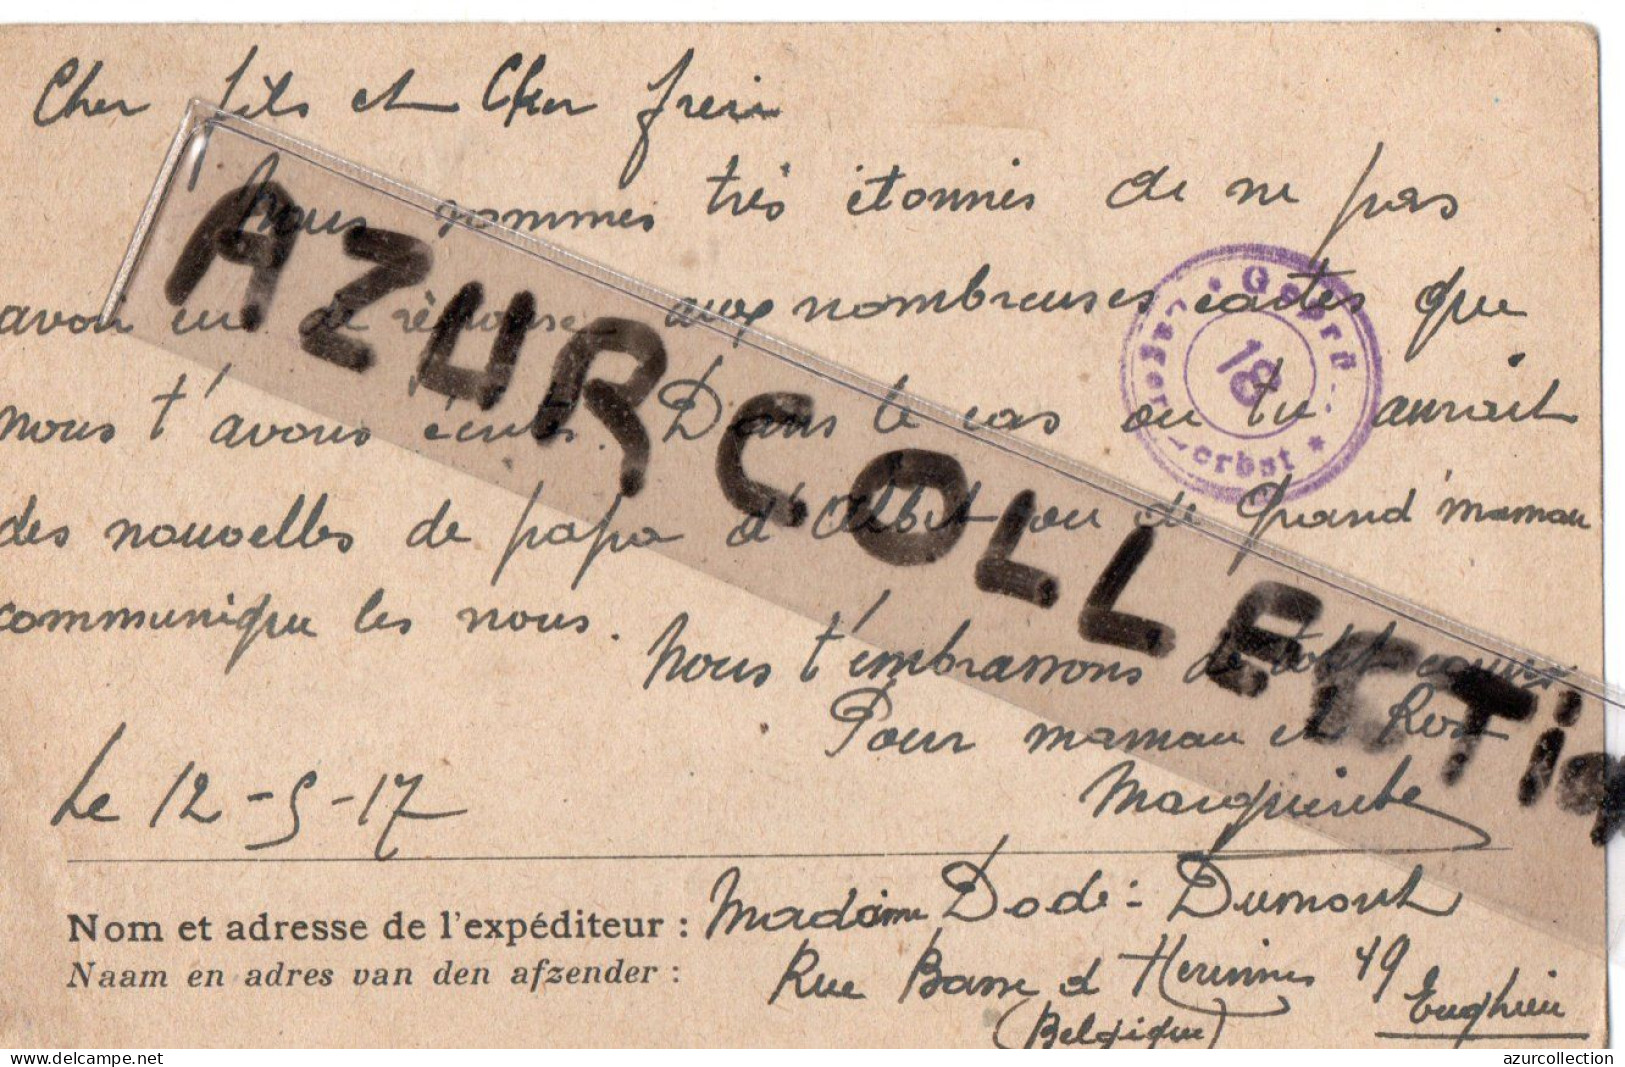 Cher fils et Cher frère
Nous sommes très étonnés de ne pas
avoir eu de réponse aux nombreuses cartes que
nous t'avons écrits. Dans le cas ou tu aurait
des nouvelles de papa d'Albert ou de Grand'maman
communique les nous.
Nous t'embrassons de tout coeur
Pour maman et Rosa
Marguerite
Le 12-5-17
Nom et adresse de l'expéditeur : Madame Dodé-Dumont
Naam en adres van den afzender : Rue Basse d Herinnes 49
Enghien
(Belgique)
Geprü
18
Lager Zerbst
AZURCOLLECTION
delcampe.net
azurcollection